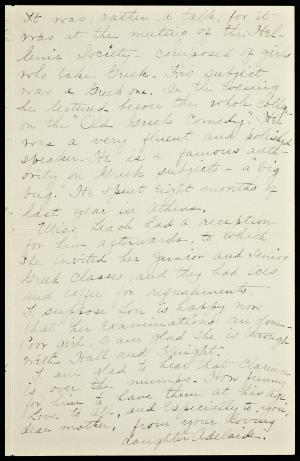 It was, rather, a talk, for it
was at the meeting of the Hel-
lenic Society - composed of girls
who take Greek. His subject
was a Greek one. In the evening
he lectured before the whole college
on the "Old Greek Comedy." He
was a very fluent and polished
speaker. He is a famous auth-
ority on Greek subjects - a "big
bug." He spent eight months of
last year in Athens.
Miss Leach had a reception
for him afterwards, to which
she invited her Junior and Senior
Greek Classes, and they had ices
and coffee for refreshments.
I suppose Lon is happy now
that her examinations are done.
Poor girl, I am glad she is through
with Hall and Knight.
I am glad to hear that Clarence
is over the mumps. How funny
for him to have them at his age.
Love to all, and especially to you,
dear mother, from your loving
daughter Adelaide.